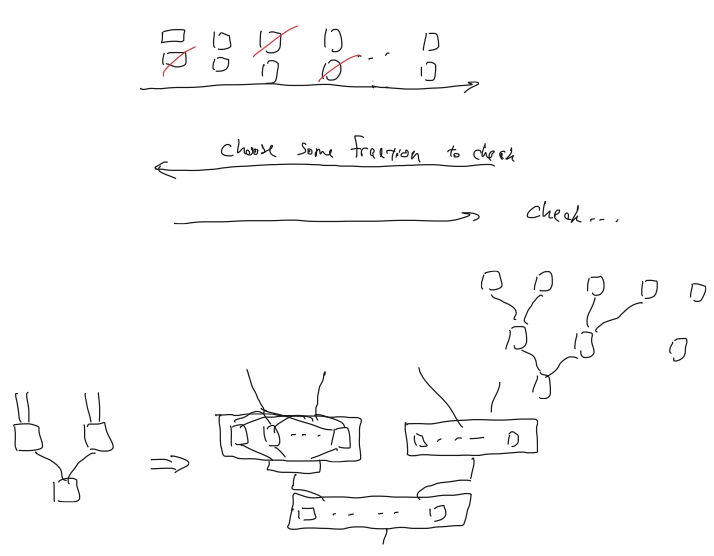 choose some fraction to check
check...